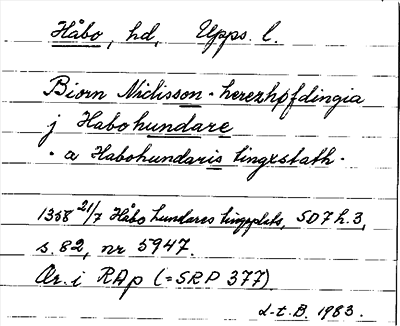 Håbo, hd, Upps. l.
Biorn Niclisson · herezhøfdingia
j Habohundare
· a Habohundaris tingxstath ·
1358 21/7 Håbo hundares tingplats, SD 7 h. 3,
s. 82, nr 5947.
Or. i RAp (= SRP 377)
L.t.B. 1983.